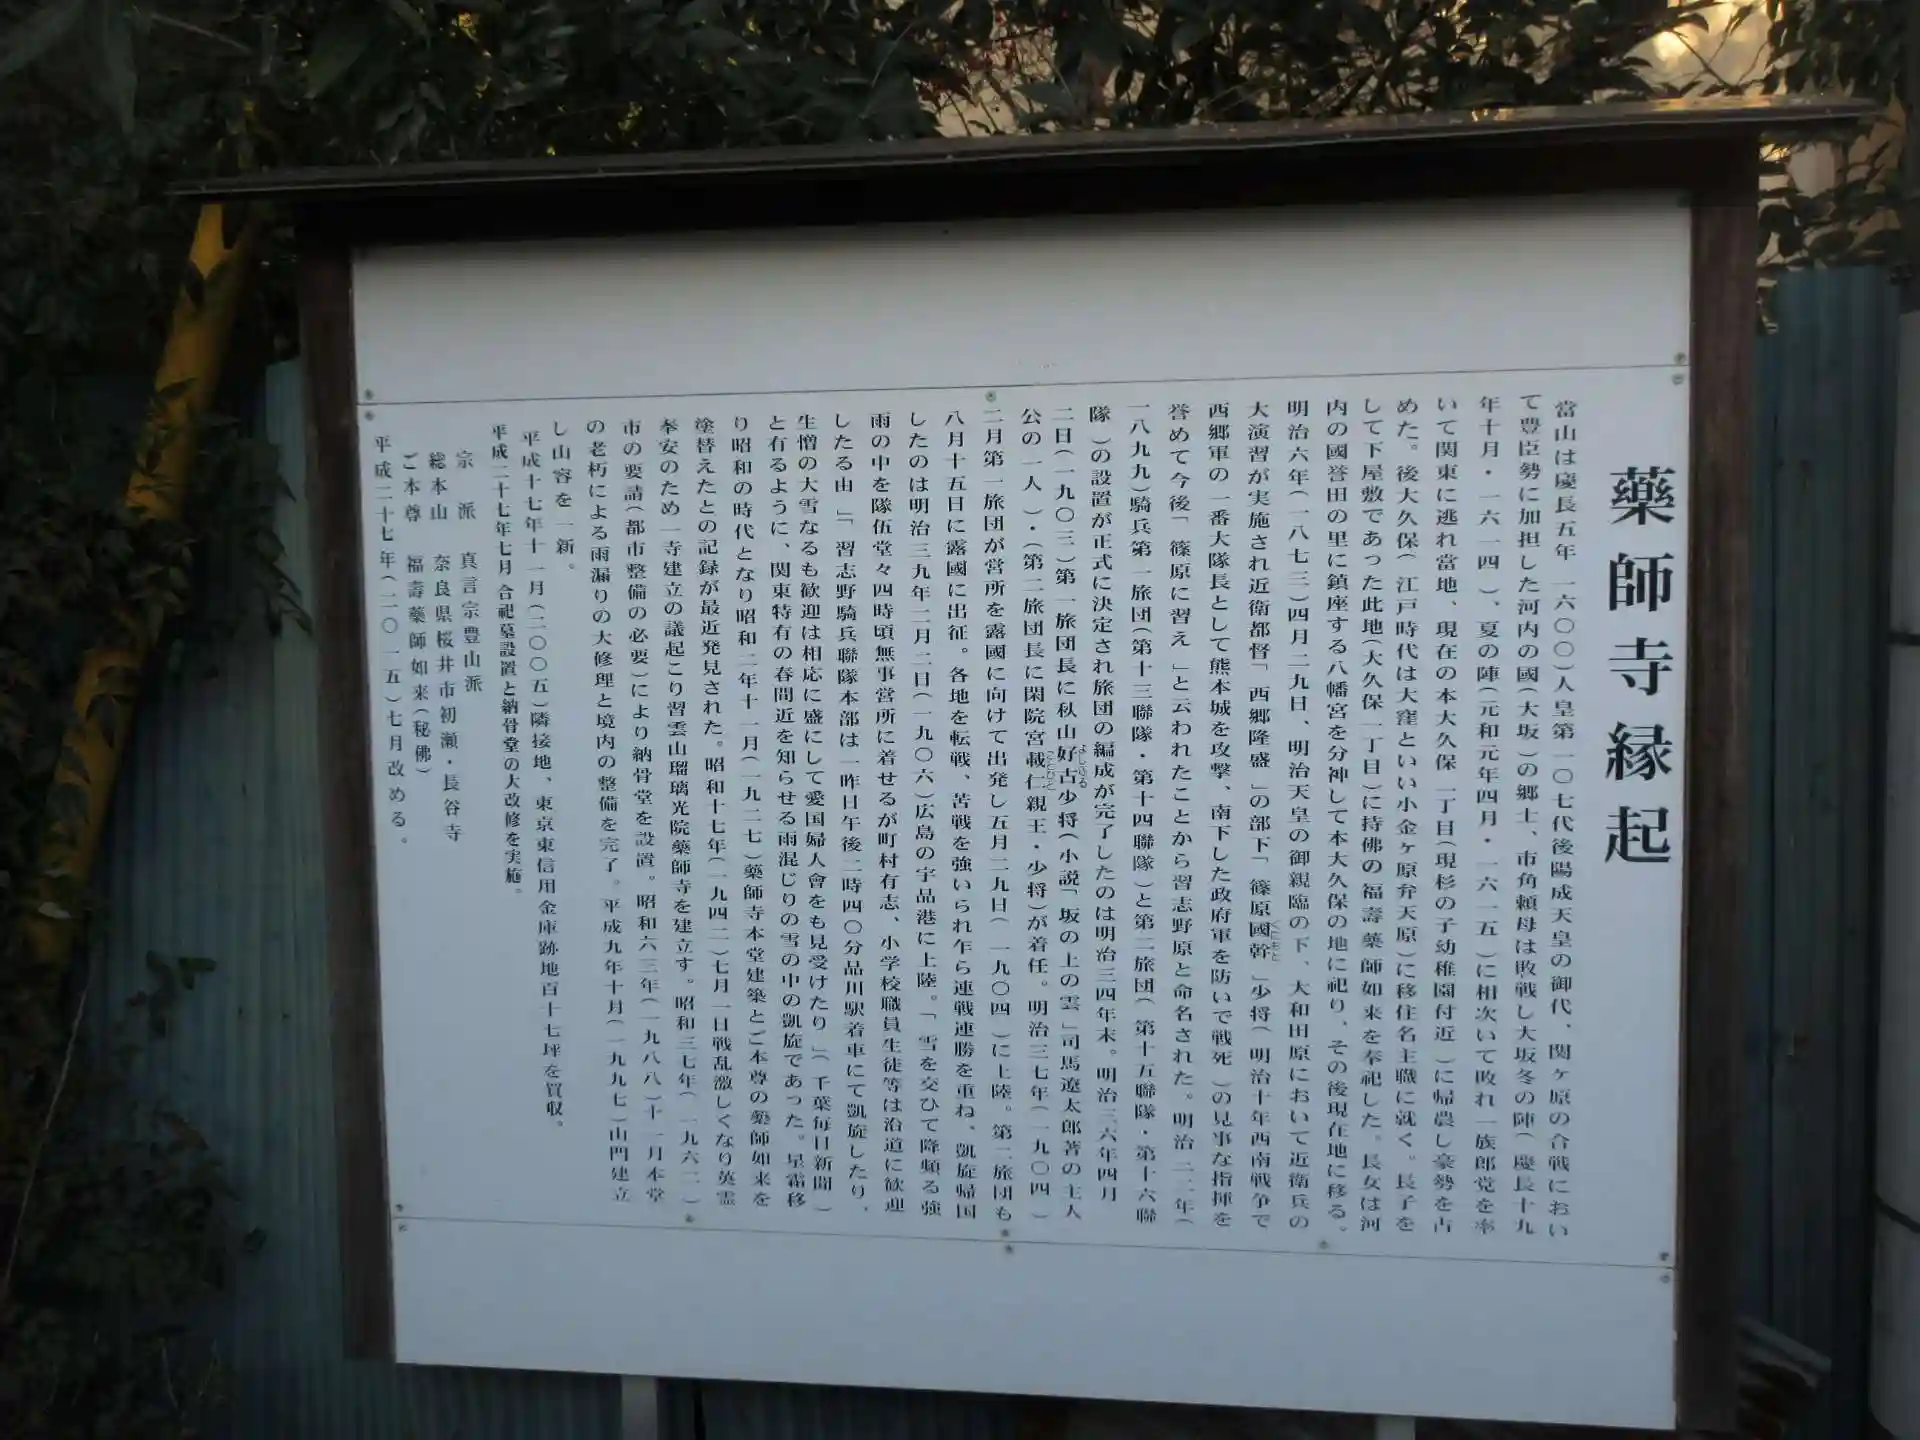 藥師寺縁起
當山は慶長五年(一六〇〇)人皇第一〇七代後陽成天皇の御代、関ヶ原の合戦におい
て豊臣勢に加担した河内の國(大坂)の郷士、市角頼母は敗戦し大坂冬の陣(慶長十九
年十月・一六一四)、夏の陣(元和元年四月・一六一五)に相次いで敗れ一族郎党を率
いて関東に逃れ當地、現在の本大久保一丁目(現杉の子幼稚園付近)に帰農し豪勢を占
めた。後大久保(江戸時代は大窪といい小金ヶ原弁天原)に移住名主職に就く。長子を
して下屋敷であった此地(大久保一丁目)に持佛の福壽藥師如来を奉祀した。長女は河
内の國誉田の里に鎮座する八幡宮を分神して本大久保の地に祀り、その後現在地に移る。
明治六年(一八七三)四月二九日、明治天皇の御親臨の下、大和田原において近衛兵の
大演習が実施され近衛都督「西郷隆盛」の部下「篠原國幹」少将(明治十年西南戦争で
西郷軍の一番大隊長として熊本城を攻撃、南下した政府軍を防いで戦死)の見事な指揮を
誉めて今後「篠原に習え」と云われたことから習志野原と命名された。明治三二年(
一八九九)騎兵第一旅団(第十三聯隊・第十四聯隊)と第二旅団(第十五聯隊・第十六聯
隊)の設置が正式に決定され旅団の編成が完了したのは明治三四年末。明治三六年四月
二日(一九〇三)第一旅団長に秋山好古少将(小説「坂の上の雲」司馬遼太郎著の主人
公の一人)・(第二旅団長に閑院宮載仁親王・少将)が着任。明治三七年(一九〇四)
二月第一旅団が営所を露國に向けて出発し五月二九日(一九〇四)に上陸。第二旅団も
八月十五日に露國に出征。各地を転戦、苦戦を強いられ乍ら連戦連勝を重ね、凱旋帰国
したのは明治三九年二月二日(一九〇六)広島の宇品港に上陸。「雪を交ひて降頻る強
雨の中を隊伍堂々四時頃無事営所に着せるが町村有志、小学校職員生徒等は沿道に歓迎
したる由」「習志野騎兵聯隊本部は一昨日午後二時四〇分品川駅着車にて凱旋したり、
生憎の大雪なるも歓迎は相応に盛にして愛国婦人會をも見受けたり」(千葉毎日新聞)
と有るように、関東特有の春間近を知らせる雨混じりの雪の中の凱旋であった。星霜移
り昭和の時代となり昭和二年十一月(一九二七)藥師寺本堂建築とご本尊の藥師如来を
塗替えたとの記録が最近発見された。昭和十七年(一九四二)七月一日戦乱激しくなり英霊
奉安のため一寺建立の議起こり習雲山瑠璃光院藥師寺を建立す。昭和三七年(一九六二)
市の要請(都市整備の必要)により納骨堂を設置。昭和六三年(一九八八)十一月本堂
の老朽による雨漏りの大修理と境内の整備を完了。平成九年十月(一九九七)山門建立
し山容を一新。
平成十七年十一月(二〇〇五)隣接地、東京東信用金庫跡地百十七坪を買収。
平成二十七年七月合祀墓設置と納骨堂の大改修を実施。
宗派 真言宗豊山派
総本山 奈良県桜井市初瀬・長谷寺
ご本尊 福壽藥師如来(秘佛)
平成二十七年(二〇一五)七月改める。